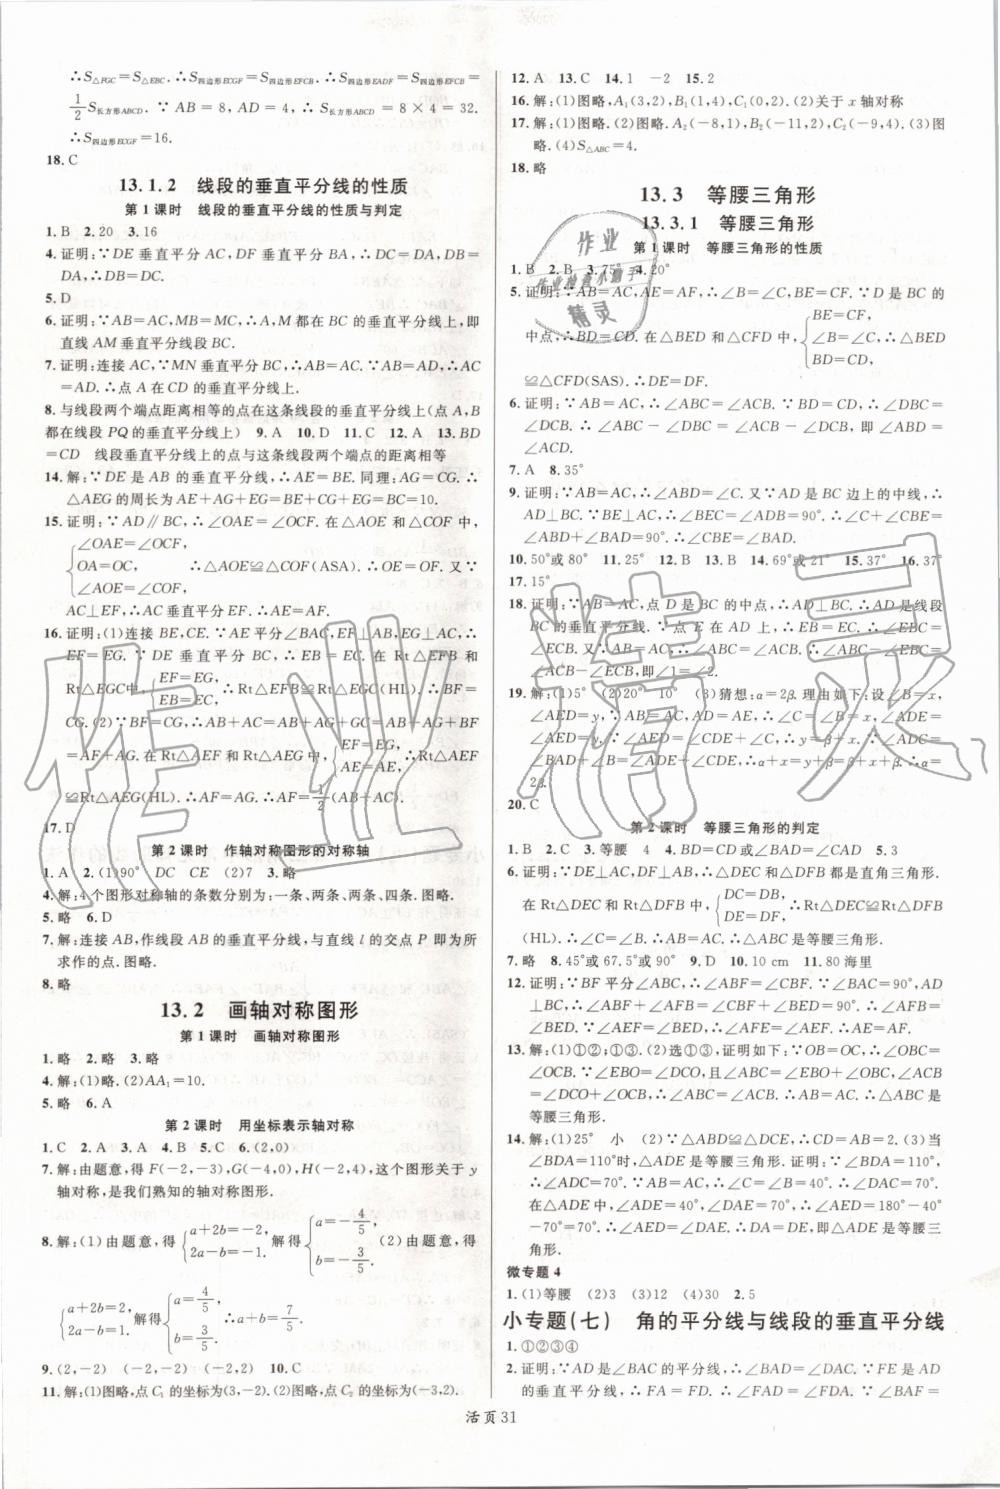 ∴S△FGC=S△EBC. ∴S四边形ECGF=S四边形EFCB. ∵S四边形EADF=S四边形EFCB=
1/2 S长方形ABCD. ∵AB=8,AD=4,∴S长方形ABCD=8×4=32.
∴S四边形ECGF=16.
18. C
13.1.2 线段的垂直平分线的性质
第1课时 线段的垂直平分线的性质与判定
1. B 2. 20 3. 16
4. 证明:∵DE垂直平分AC,DF垂直平分BA,∴DC=DA,DB=
DA.∴DB=DC.
5. D
6. 证明:∵AB=AC,MB=MC,∴A,M都在BC的垂直平分线上,即
直线AM垂直平分线段BC.
7. 证明:连接AC,∵MN垂直平分BC,∴AB=AC.∵AB=AD,∴AC
=AD.∴点A在CD的垂直平分线上.
8. 与线段两个端点距离相等的点在这条线段的垂直平分线上(点A,B
都在线段PQ的垂直平分线上) 9. A 10. D 11. C 12. A 13. BD
=CD 线段垂直平分线上的点与这条线段两个端点的距离相等
14. 解:∵DE是AB的垂直平分线,∴AE=BE.同理:AG=CG.∴
△AEG的周长为AE+AG+EG=BE+CG+EG=BC=10.
15. 证明:∵AD∥BC,∴∠OAE=∠OCF.在△AOE和△COF中,
{∠OAE=∠OCF,
OA=OC, ∴△AOE≌△COF(ASA).∴OE=OF.又∵
∠AOE=∠COF,
AC⊥EF,∴AC垂直平分EF.∴AE=AF.
16. 证明:(1)连接BE,CE.∵AE平分∠BAC,EF⊥AB,EG⊥AC,∴
EF=EG.∵DE垂直平分BC,∴EB=EC.在Rt△EFB和
Rt△EGC中,{EF=EG, EB=EC, ∴Rt△EFB≌Rt△EGC(HL).∴BF=
CG.(2)∵BF=CG,∴AB+AC=AB+AG+CG=AB+AG+BF
=AF+AG.在Rt△AEF和Rt△AEG中,{EF=EG, AE=AE, ∴Rt△AEF
≌Rt△AEG(HL).∴AF=AG.∴AF=1/2(AB+AC).
17. D
第2课时 作轴对称图形的对称轴
1. A 2. (1)90° DC CE (2)7 3. 略
4. 解:4个图形对称轴的条数分别为:一条、两条、两条、四条.图略.
5. 略 6. D
7. 解:连接AB,作线段AB的垂直平分线,与直线l的交点P即为所
求作的点.图略.
8. 略
13.2 画轴对称图形
第1课时 画轴对称图形
1. 略 2. 略 3. 略
4. 解:(1)略.(2)AA₁=10.
5. 略 6. A
第2课时 用坐标表示轴对称
1. C 2. A 3. A 4. B 5. C 6. (2,0)
7. 解:由题意,得F(-2,-3),G(-4,0),H(-2,4),这个图形关于y
轴对称,是我们熟知的轴对称图形.
8. 解:(1)由题意,得{a+2b=-2, 2a-b=-1. 解得{a=-4/5, b=-3/5. (2)由题意,得
{a+2b=2, 2a-b=1. 解得{a=4/5, b=3/5. ∴a+b=7/5.
9. (2,-2) (-2,-2) (-2,2) 10. C
11. 解:(1)图略,点C₁的坐标为(3,-2).(2)图略,点C₂的坐标为(-3,2).
12. A 13. C 14. 1 -2 15. 2
16. 解:(1)图略,A₁(3,2),B₁(1,4),C₁(0,2).(2)关于x轴对称
17. 解:(1)图略.(2)图略.A₂(-8,1),B₂(-11,2),C₂(-9,4).(3)图
略.(4)S△ABC=4.
18. 略
13.3 等腰三角形
13.3.1 等腰三角形
第1课时 等腰三角形的性质
1. B 2. B 3. 75° 4. 20°
5. 证明:∵AB=AC,AE=AF,∴∠B=∠C,BE=CF.∵D是BC的
中点,∴BD=CD.在△BED和△CFD中,{BE=CF, ∠B=∠C, BD=CD, ∴△BED
≌△CFD(SAS).∴DE=DF.
6. 证明:∵AB=AC,∴∠ABC=∠ACB.∵BD=CD,∴∠DBC=
∠DCB.∴∠ABC-∠DBC=∠ACB-∠DCB,即∠ABD=
∠ACD.
7. A 8. 35°
9. 证明:∵AB=AC,∴∠ABD=∠C.又∵AD是BC边上的中线,∴
AD⊥BC.∵BE⊥AC,∴∠BEC=∠ADB=90°.∴∠C+∠CBE=
∠ABD+∠BAD=90°.∴∠CBE=∠BAD.
10. 50°或80° 11. 25° 12. B 13. B 14. 69°或21° 15. 37° 16. 37°
17. 15°
18. 证明:∵AB=AC,点D是BC的中点,∴AD⊥BC.∴AD是线段
BC的垂直平分线.∵点E在AD上,∴BE=CE.∴∠EBC=
∠ECB.又∵AB=AC,∴∠ABC=∠ACB.∴∠ABC-∠EBC=
∠ACB-∠ECB,即∠1=∠2.
19. 解:(1)5° (2)20° 10° (3)猜想:α=2β.理由如下:设∠B=x,
∠AED=y,∵AB=AC,AD=AE,∴∠C=∠B=x,∠ADE=
∠AED=y,∵∠AED=∠CDE+∠C,∴y=β+x.∵∠ADC=
∠BAD+∠B=∠ADE+∠CDE,∴α+x=y+β=β+x+β.∴α=
2β.
20. C
第2课时 等腰三角形的判定
1. B 2. C 3. 等腰 4 4. BD=CD或∠BAD=∠CAD 5. 3
6. 证明:∵DE⊥AC,DF⊥AB,∴△DEC和△DFB都是直角三角形.
在Rt△DEC和Rt△DFB中,{DC=DB, DE=DF, ∴Rt△DEC≌Rt△DFB
(HL).∴∠B=∠C.∴AB=AC.∴△ABC是等腰三角形.
7. 略 8. 45°或67.5°或90° 9. D 10. 10 cm 11. 80海里
12. 证明:∵BF平分∠ABC,∴∠ABF=∠CBF.∵∠BAC=90°,AD⊥
BC,∴∠ABF+∠AFB=∠CBF+∠BED=90°.∴∠AFB=
∠BED.∵∠BED=∠AEF,∴∠AFE=∠AEF.∴AE=AF.
13. 解:(1)①②;①③.(2)选①③,证明如下:∵OB=OC,∴∠OBC=
∠OCB.∵∠EBO=∠DCO,且∠ABC=∠EBO+∠OBC,∠ACB
=∠DCO+∠OCB,∴∠ABC=∠ACB.∴AB=AC.∴△ABC是
等腰三角形.
14. 解:(1)25° 小 (2)∵△ABD≌△DCE,∴CD=AB=2.(3)当
∠BDA=110°时,△ADE是等腰三角形.证明:∵∠BDA=110°,
∴∠ADC=70°.∵AB=AC,∴∠C=∠B=40°.∴∠DAC=70°.
在△ADE中,∠ADE=40°,∠DAE=70°,∴∠AED=180°-40°
-70°=70°.∴∠AED=∠DAE.∴DA=DE,即△ADE是等腰三
角形.
微专题4
1. (1)等腰 (2)3 (3)12 (4)30 2. 5
小专题(七) 角的平分线与线段的垂直平分线
1. ①②③④
2. 证明:∵AD是∠BAC的平分线,∴∠BAD=∠DAC.∵FE是AD
的垂直平分线,∴FA=FD.∴∠FAD=∠FDA.∵∠BAF=
活页31
作业
作业检查小助手
精灵
作业精灵